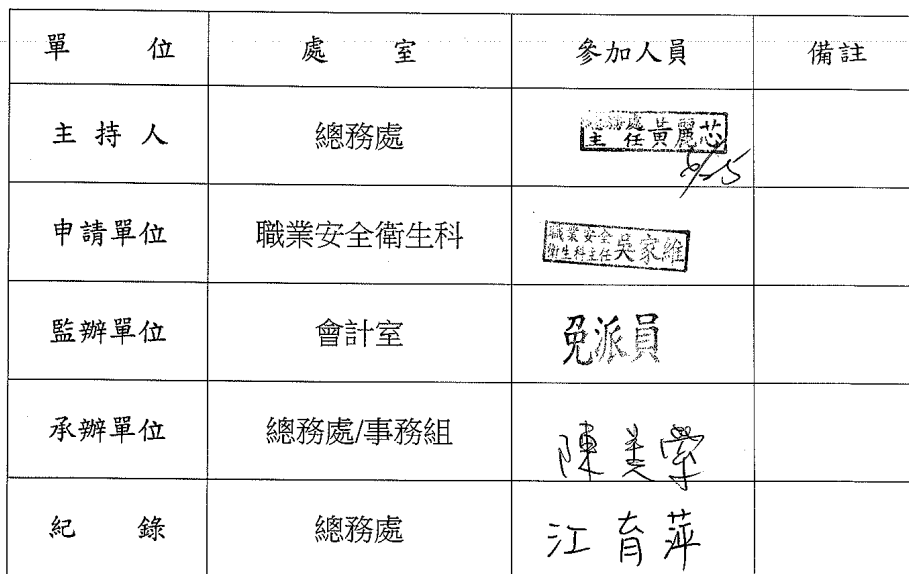 單 位 處 室 參加人員 備註
主 持 人 總務處 總務處主任黃麗芯
申請單位 職業安全衛生科 職業安全衛生科主任吳家維
監辦單位 會計室 免派員
承辦單位 總務處/事務組 陳美
紀 錄 總務處 江育萍